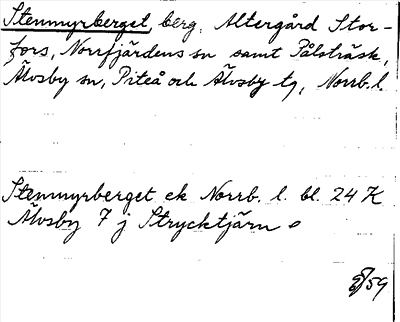 Stenmyrberget, berg. Altergård Stor-
fors, Norrfjärdens sn samt Pålsträsk,
Älvsby sn, Piteå och Älvsby tg, Norrb. l.
Stenmyrberget ek Norrb. l. bl. 24 K
Älvsby 7 j Strycktjärn o
/59